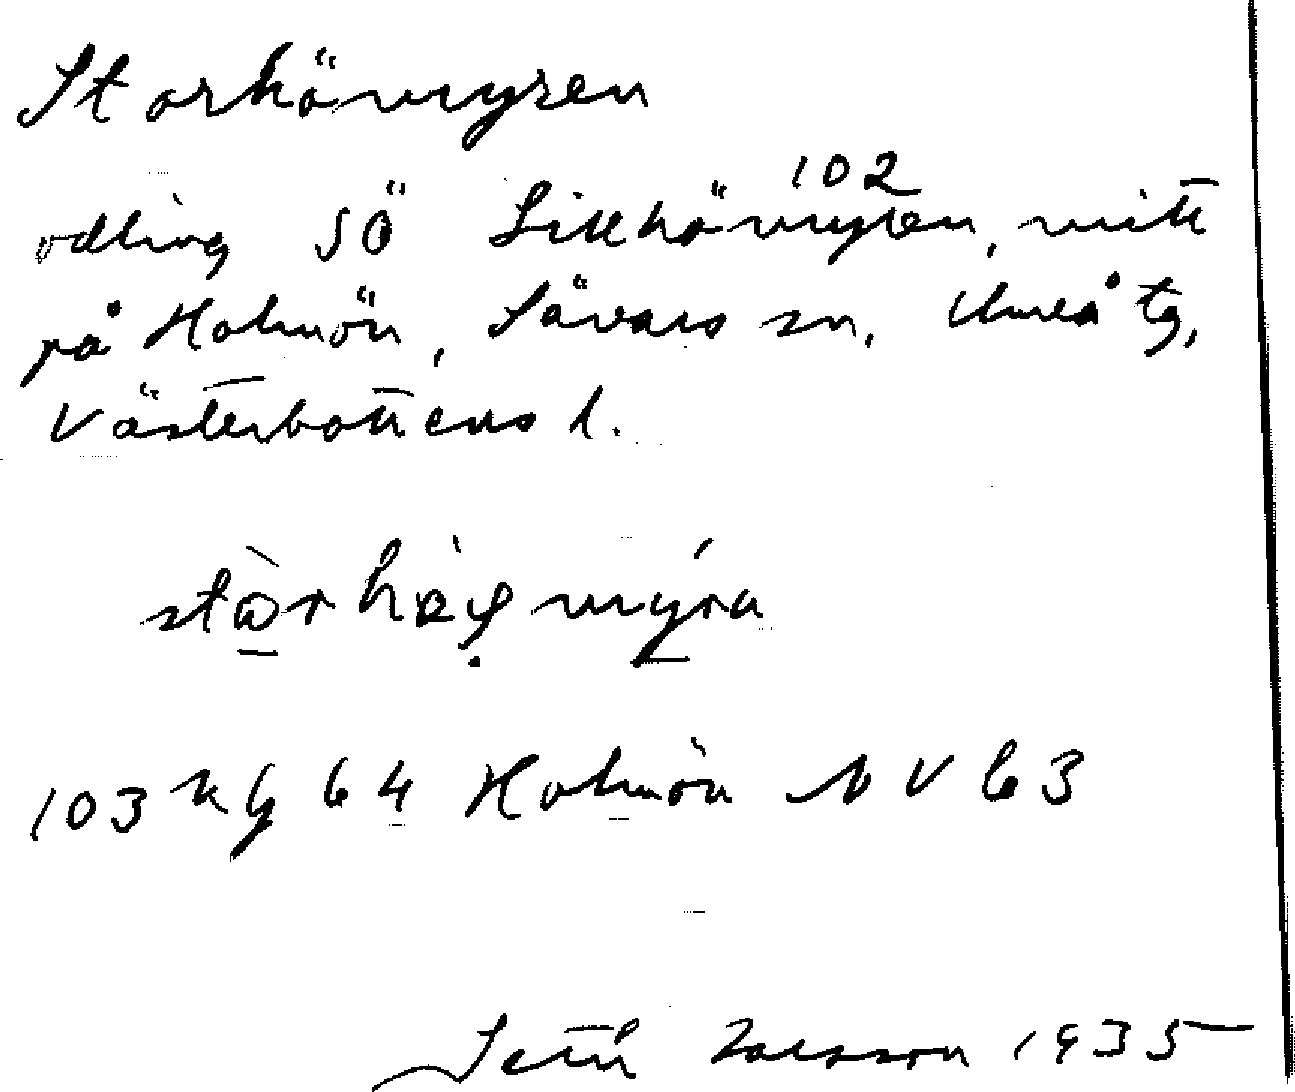 Storhömyren
odling SÖ Lillhömyren 102, mitt
på Holmön, Sävars sn, Umeå tg,
Västerbottens l.
103 Kg 64 Holmön NV 63
Seth Larsson 1935